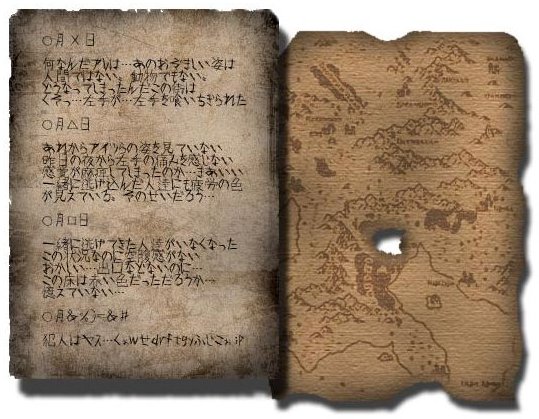 ○月×日
何なんだアレは…あのおぞましい姿は
人間ではない。動物でもない。
どうなってしまったんだこの街は
くそっ…左手が…左手を喰いちぎられた
○月△日
あれからアイツらの姿を見ていない
昨日の夜から左手の痛みを感じない
感覚が麻痺してしまったのか…まあいい
一緒に逃げ込んだ人達にも疲労の色
が見えている。そのせいだろう…
○月□日
一緒に逃げてきた人達がいなくなった
この状況なのに空腹感がない
おかしい…出口などないのに…
この床は赤い色だっただろうか…
覚えていない…
○月&%)=&#
犯人はヤス…くぁwせdrftgyふじこぁip